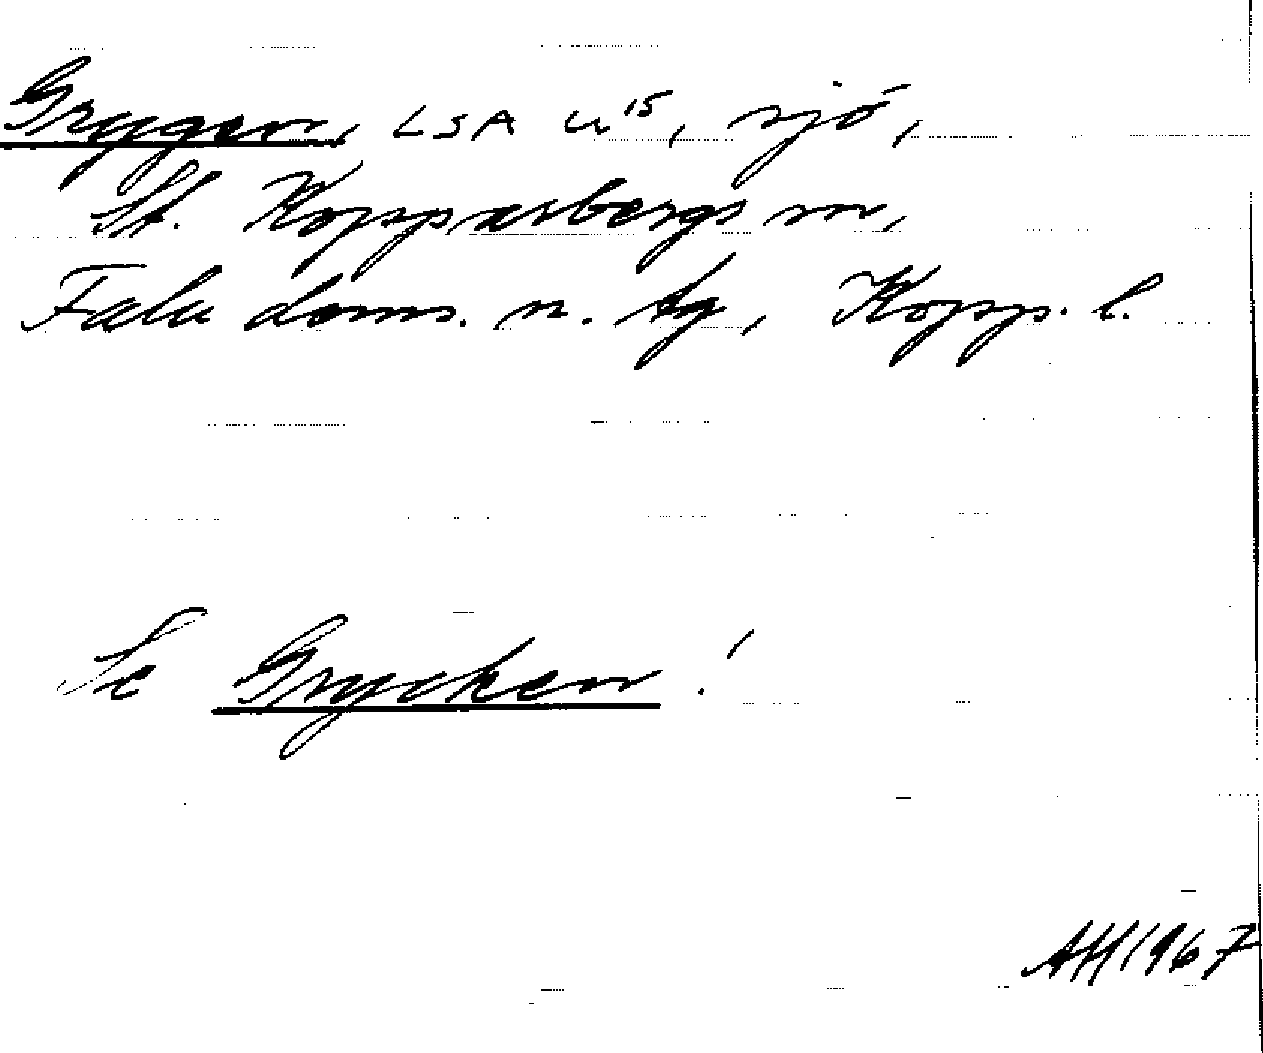 Grygen, LSA U15, sjö,
St. Kopparbergs sn,
Falu doms. n. tg, Kopp. l.
Se Grycken!
AH 1967